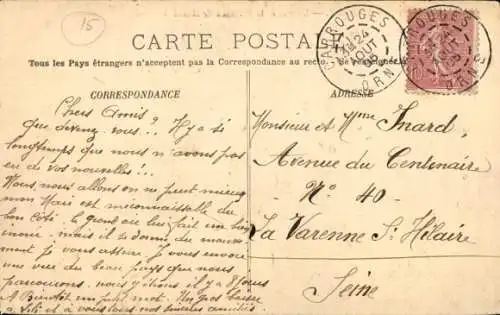 15
CARTE POSTALE
Tous les Pays étrangers n'acceptent pas la Correspondance au recto
CORRESPONDANCE
ADRESSE
CARROUGES
24
AOUT
ORNE
CARROUGES
AOUT
ORN
Chers Amis
que devenez-vous ?.. Il y a si
longtemps que nous n'avons pas
eu de vos nouvelles !..
Nous nous allons on ne peut mieux
mon Mari est méconnaissable du
bon côté. le grand air lui fait un bien
inouï. mais il se donne du mouve
ment je vous assure Je vous envoie
une vue du beau pays que nous
parcourons. nous y étions il y a 8 jours
A Bientôt un petit mot. Un gros baiser
à Lili et à vous nos sincères amitiés.
Monsieur et Mme Inard,
Avenue du Centenaire
No 40.
La Varenne St Hilaire
Seine